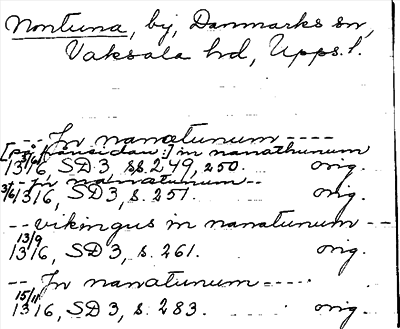 Nontuna, by, Danmarks sn,
Vaksala hd, Upps. l.
-- In nanatunum ----
[på framsidan:] in nanathunum
3/6 1316, SD 3, ss. 249, 250. orig.
-- in nanatunum --
3/6 1316, SD 3, s. 251. orig.
-- vikingus in nanatunum --
13/9 1316, SD 3, s. 261. orig.
-- In nanatunum ----
15/11 1316, SD 3, s. 283. orig.